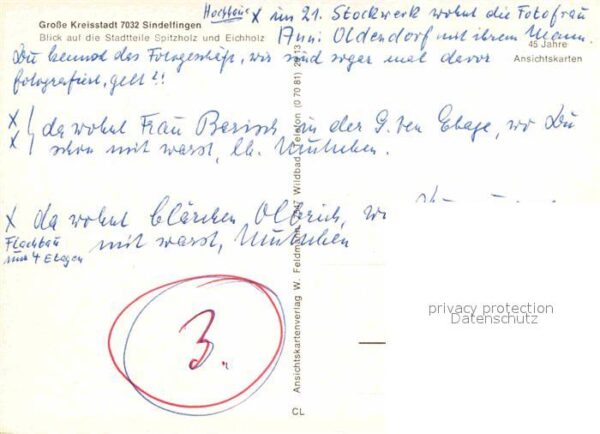 Große Kreisstadt 7032 Sindelfingen
Blick auf die Stadtteile Spitzholz und Eichholz
Hochhaus X im 21. Stockwerk wohnt die Fotofrau
Oldendorf mit ihrem Mann.
45 Jahre
Ansichtskarten
Du kennst das Fotogeschäft, wir sind sogar mal davor
fotografiert, gell!!
X
X
da wohnt Frau in der 9. ten Etage, wo Du
schon mit warst, lb. Muttchen.
X da wohnt Clärchen Olbrich, wo
Flachbau
nur 4 Etagen
mit warst, Muttchen
3.
Ansichtskartenverlag W. Feldmann, Wildbad, Telefon (0 70 81)
CL
privacy protection
Datenschutz